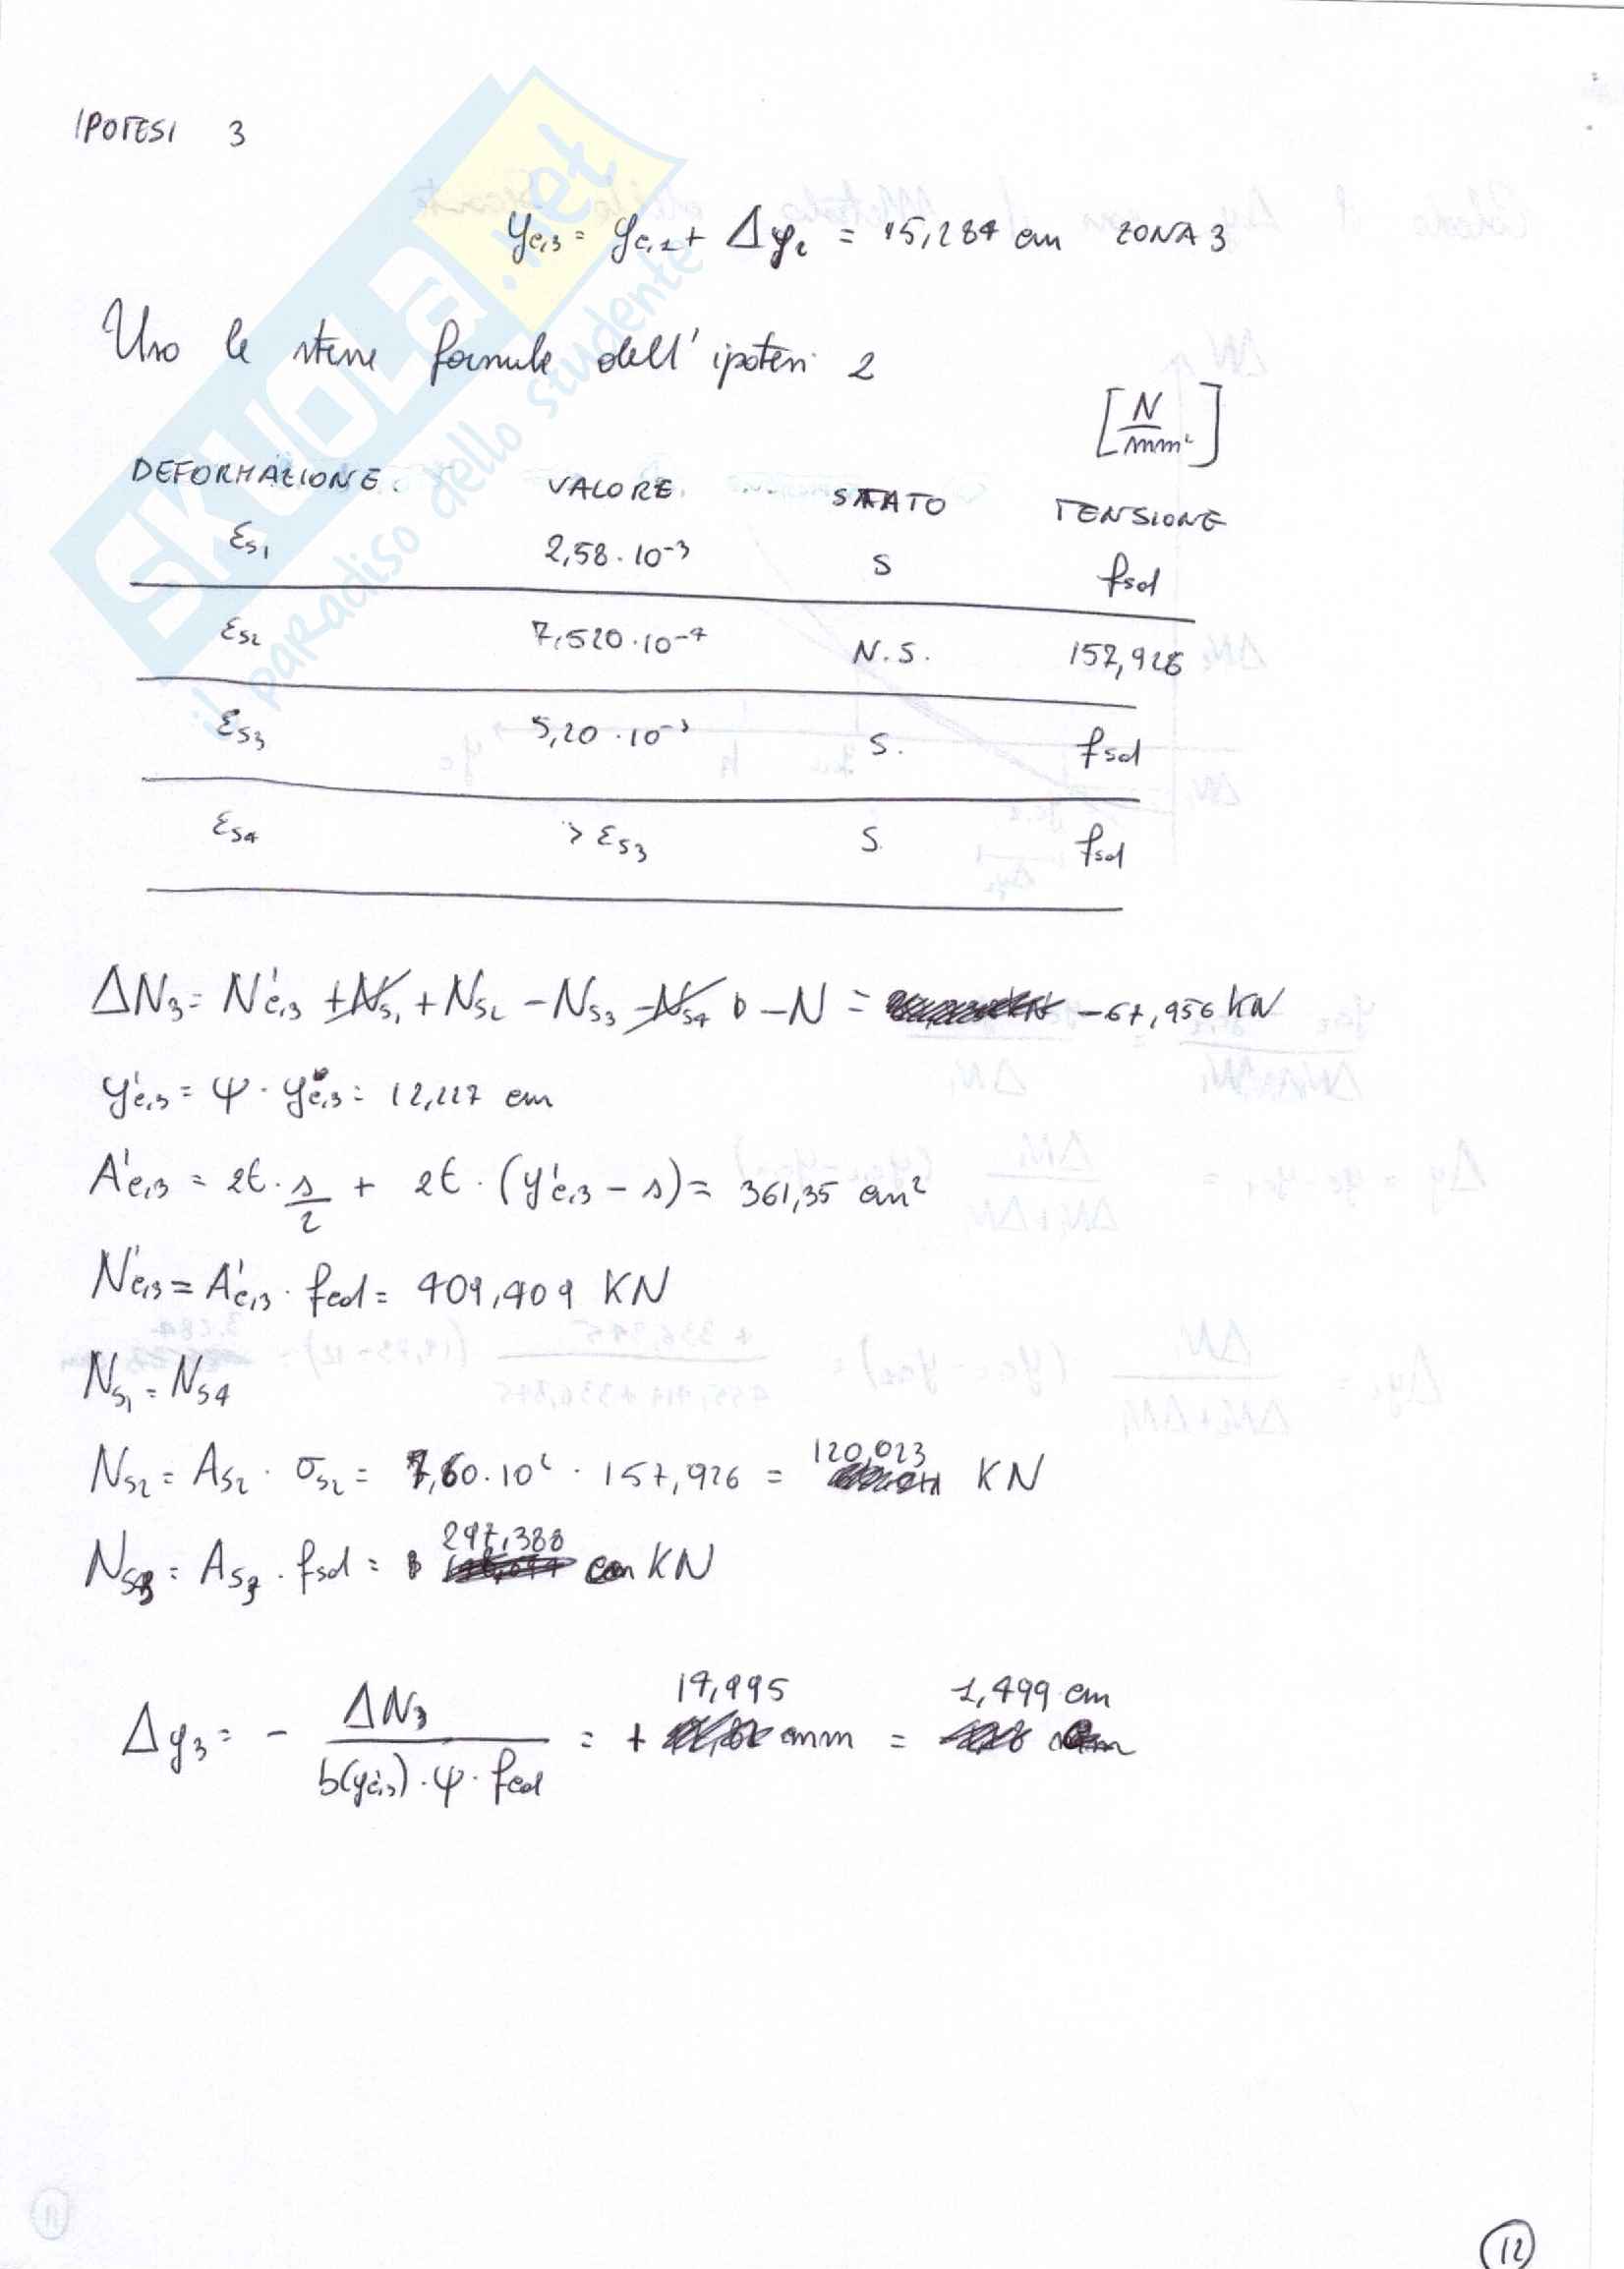 IPOTESI 3
yc,3 = yc,2 + Δy2 = 15,284 cm ZONA 3
Uso le stesse formule dell'ipotesi 2
[N/mm²]
DEFORMAZIONE. VALORE. STATO TENSIONE
εs1 2,58·10⁻³ S fsd
εs2 7,520·10⁻⁴ N.S. 157,926
εs3 5,20·10⁻³ S. fsd
εs4 > εs3 S. fsd
ΔN3 = N'c,3 + Ns1 + Ns2 - Ns3 - Ns4 - N = -67,956 KN
y'c,3 = ψ · yc,3 = 12,227 cm
A'c,3 = 2t · s/2 + 2t · (y'c,3 - s) = 361,35 cm²
N'c,3 = A'c,3 · fcd = 409,409 KN
Ns1 = Ns4
Ns2 = As2 · σs2 = 7,60·10² · 157,926 = 120,023 KN
Ns3 = As3 · fsd = 297,388 KN
Δy3 = - ΔN3 / b(y'c,3) · ψ · fcd = + 14,995 mm = 1,499 cm
12
SKUOLA.net
il paradiso dello studente